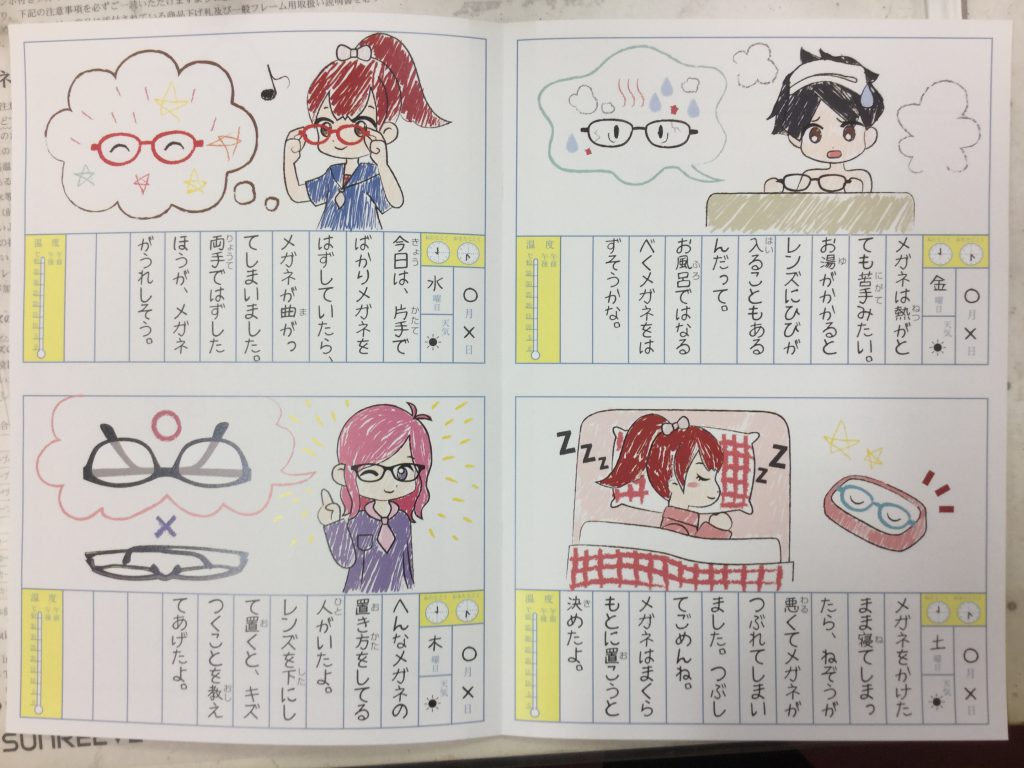 ○月×日
水曜日
天気
今日は、片手で
ばかりメガネを
はずしていたら、
メガネが曲がっ
てしまいました。
両手ではずした
ほうが、メガネ
がうれしそう。
温度
午前
午後
○月×日
木曜日
天気
へんなメガネの
置き方をしてる
人がいたよ。
レンズを下にし
て置くと、キズ
つくことを教え
てあげたよ。
温度
午前
午後
○月×日
金曜日
天気
メガネは熱がと
ても苦手みたい。
お湯がかかると
レンズにひびが
入ることもある
んだって。
お風呂ではなる
べくメガネをは
ずそうかな。
温度
午前
午後
ZZZZ
ZZZ
○月×日
土曜日
天気
メガネをかけた
まま寝てしまっ
たら、ねぞうが
悪くてメガネが
つぶれてしまい
ました。つぶし
てごめんね。
メガネはまくら
もとに置こうと
決めたよ。
温度
午前
午後